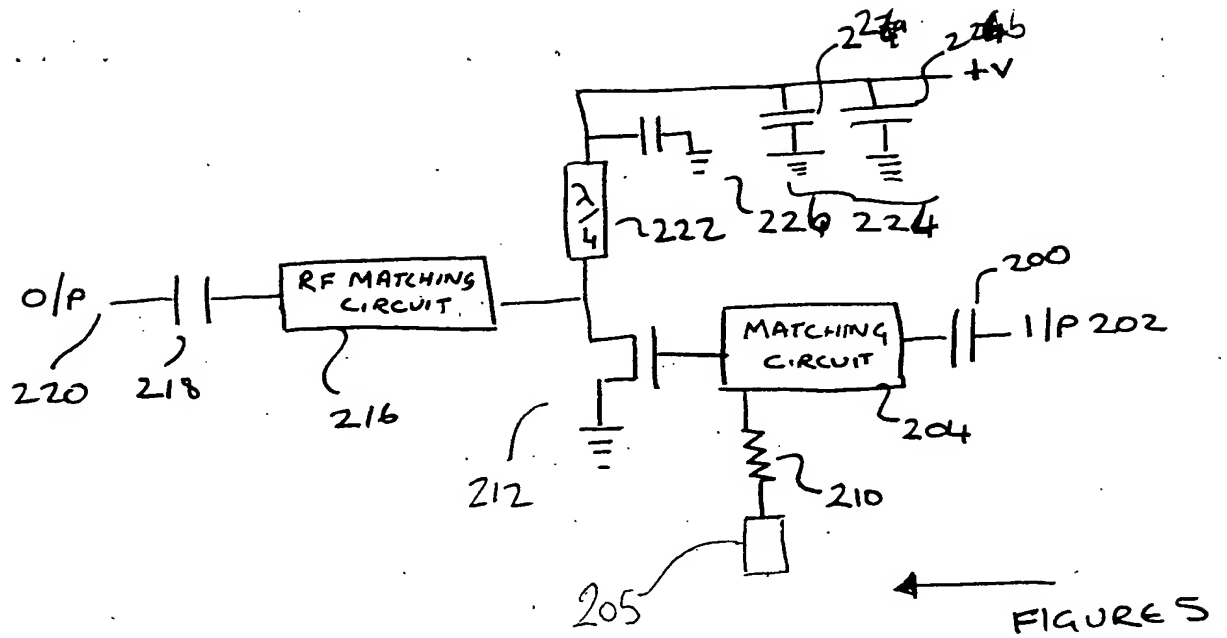 +V
λ/4
222
226
224
200
O/P
RF MATCHING
CIRCUIT
MATCHING
CIRCUIT
I/P 202
220
218
216
204
212
210
205
FIGURE 5